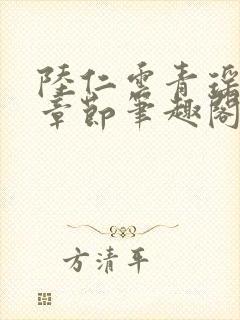 陸仁雲青瑶
章節筆趣閣
方清平